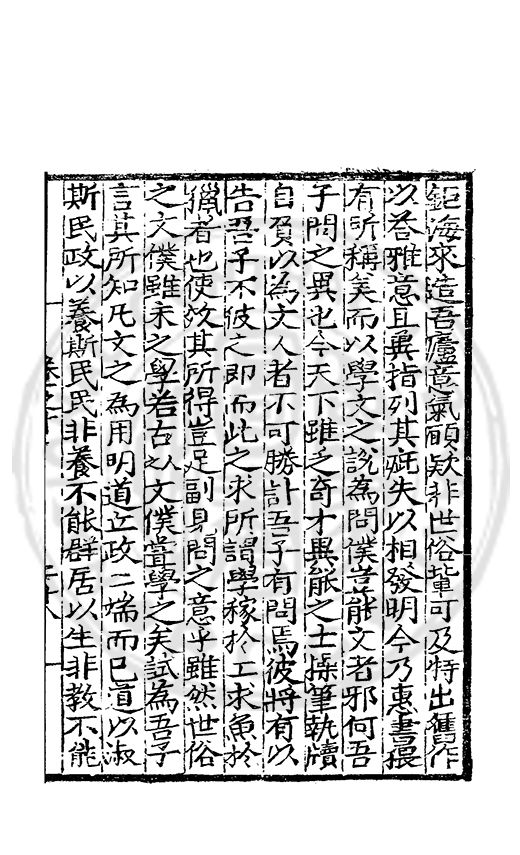 鉅海來造吾廬意氣碩欵非世俗輩可及特出舊作
以荅雅意且異指列其疵失以相發明今乃惠書猥
有所稱美而以學文之說為問僕豈能文者邪何吾
子問之異也今天下雖乏奇才異能之士操筆執牘
自負以為文人者不可勝計吾子有問焉彼將有以
告吾子不彼之即而此之求所謂學稼於工求魚於
獵者也使效其所得豈足副見問之意乎雖然世俗
之文僕雖未之學若古之文僕嘗學之矣試為吾子
言其所知凡文之為用明道立政二端而已道以淑
斯民政以養斯民民非養不能群居以生非教不能
卷之十
二十八